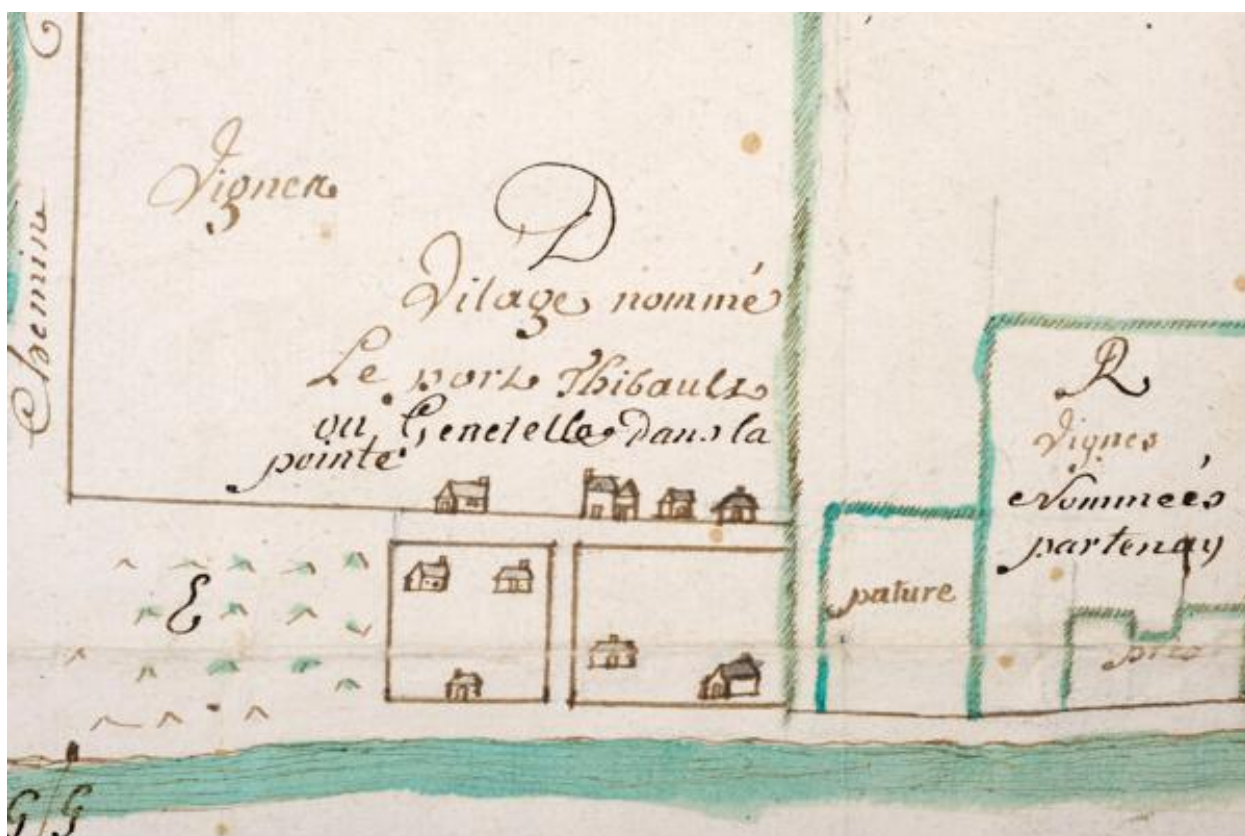 Chemin
Vignes
D
Vilage nommé
Le port Thibault
ou Genetelle Dans la
pointe
R
Vignes
Nommées
partenay
E
pature
prés
G G